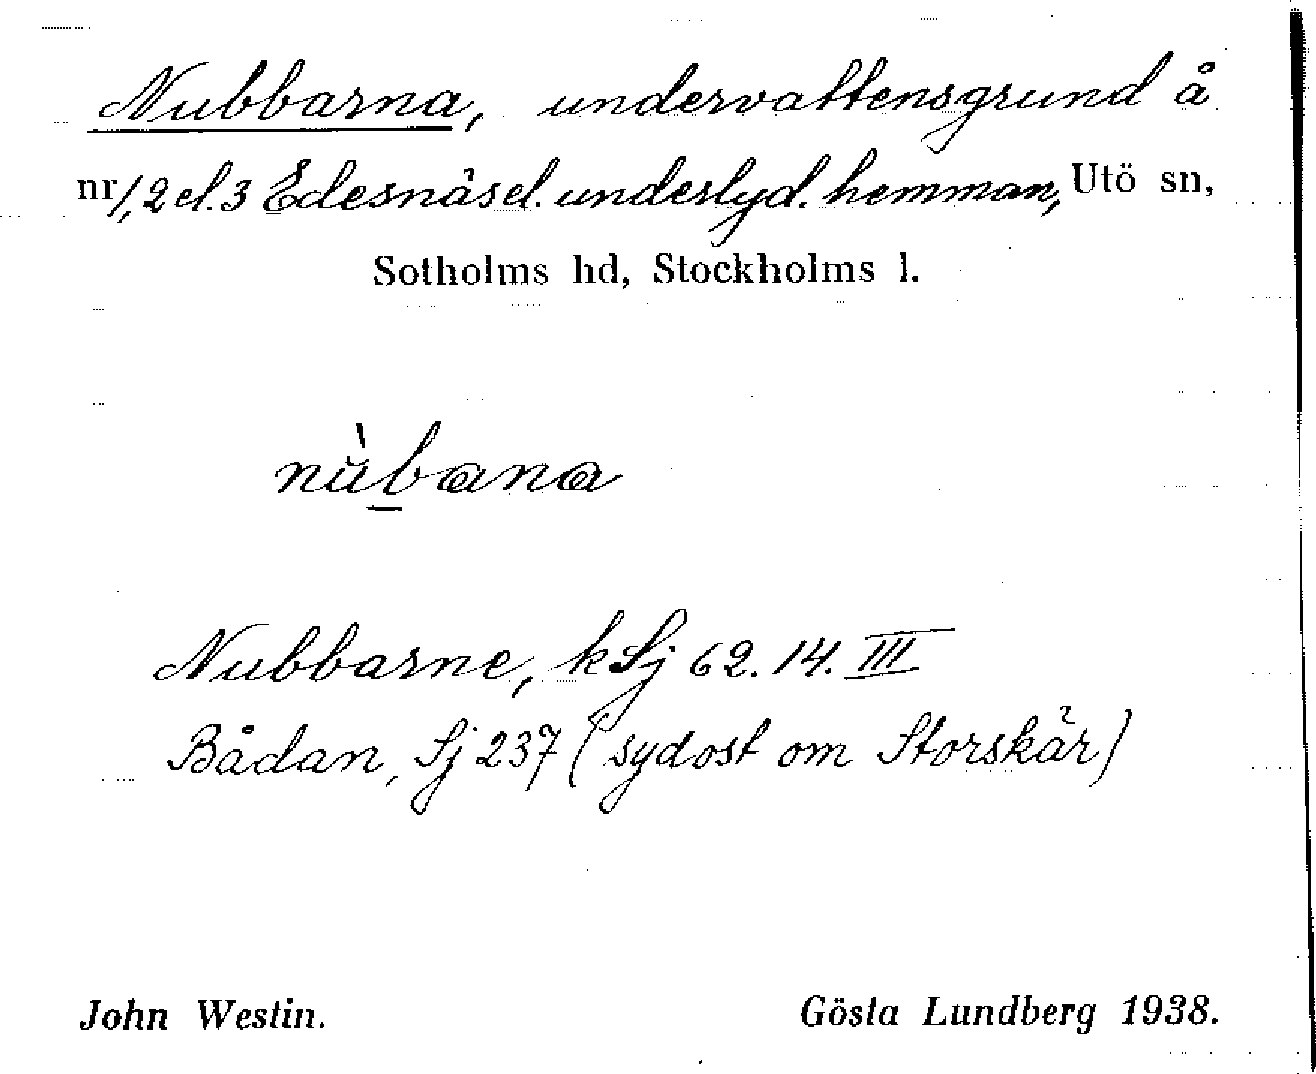 Nubbarna, undervattensgrund å
nr 1, 2 el. 3 Edesnäs el. underlyd. hemman, Utö sn,
Sotholms hd, Stockholms l.
nu̇̀bana
Nubbarne, kSj 62. 14. III
Bådan, Sj 237 (sydost om Storskär)
John Westin. Gösta Lundberg 1938.